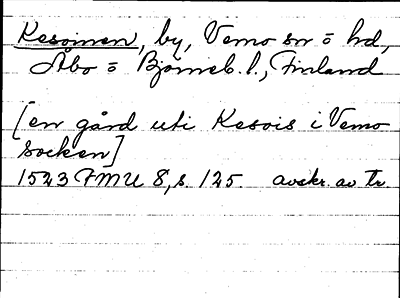 Kesoinen, by, Vemo sn o hd,
Åbo o Björneb. l., Finland
[en gård uti Kesois i Vemo
socken]
1523 FMU 8, s. 125. avskr. av tr.